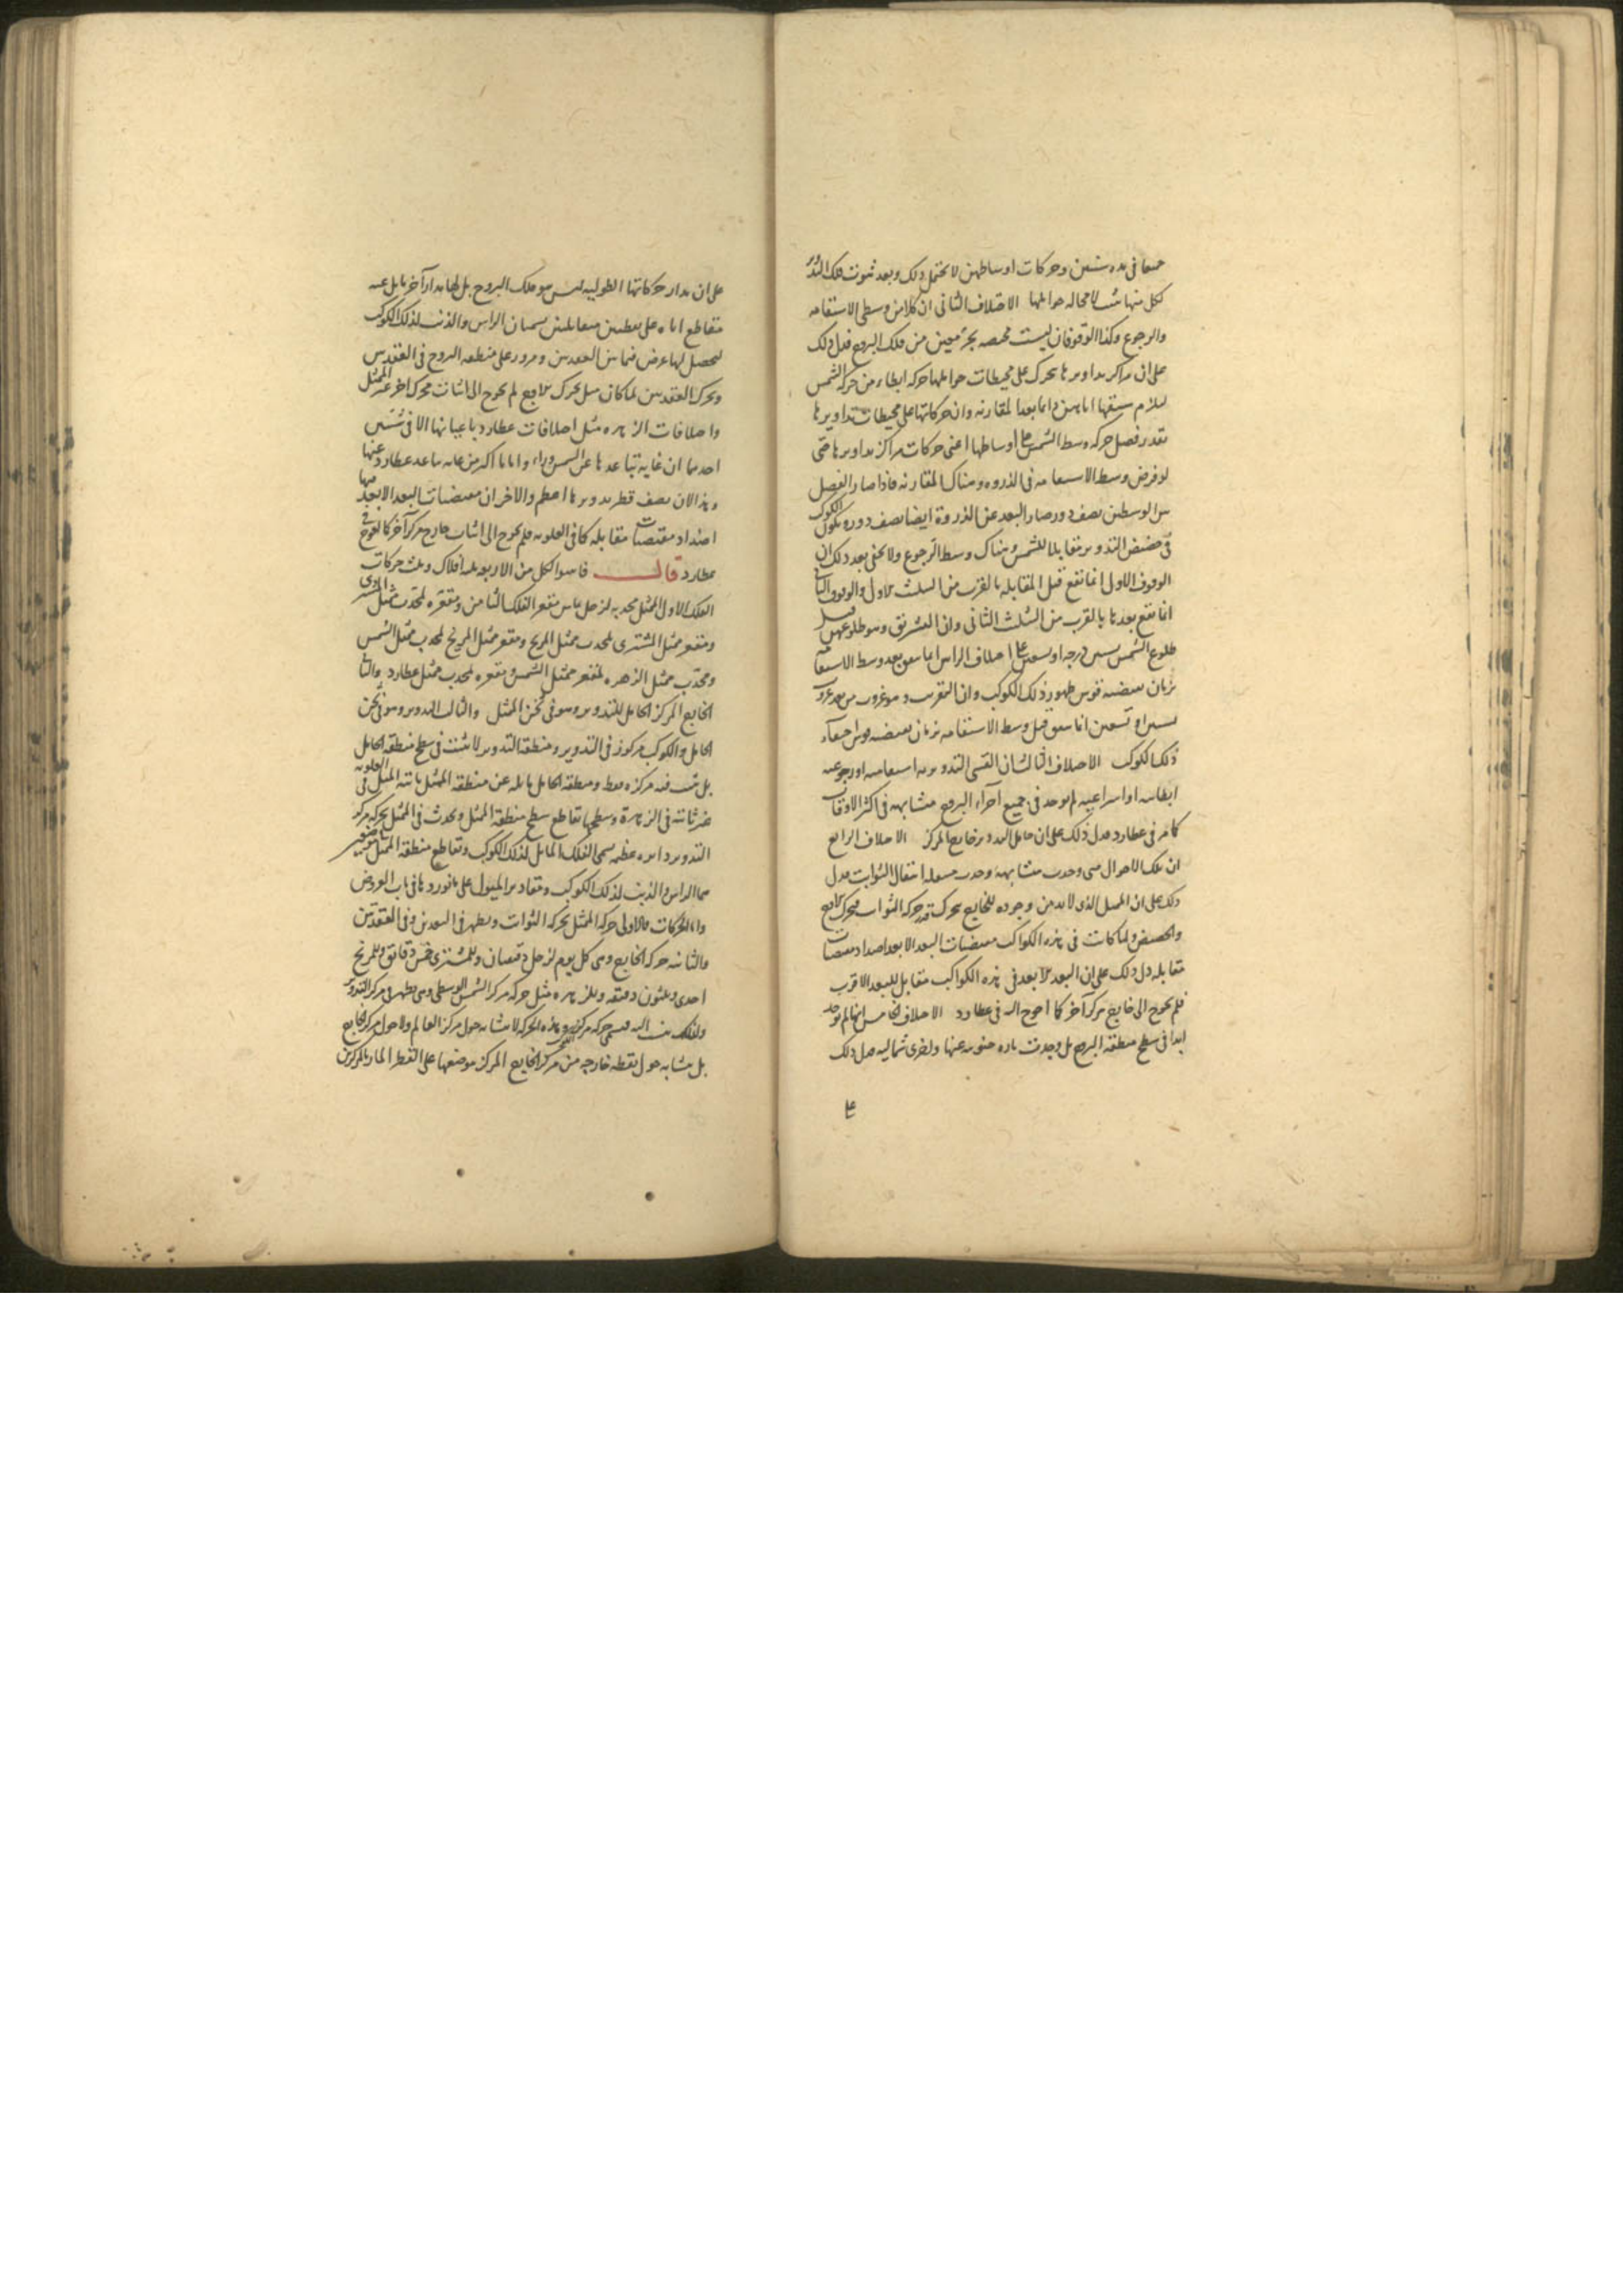 جمعا في مدة سنين وحركات اوساطهن لا يحتمل ذلك وبعد ثبوت فلك التدوير
لكل منها يثبت لا محالة حواملها الاختلاف الثاني ان كلا من وسطي الاستقامة
والرجوع وكذا الوقوفان ليست مختصة بجزء معين من فلك البروج فدل ذلك
على ان مراكز تداويرها تتحرك على محيطات حواملها حركة ابطاء من حركة الشمس
ليلزم سبقها اياهن دائما بعد المقارنة وان حركاتها على محيطات تداويرها
بقدر فضل حركة وسط الشمس على اوساطها اعني حركات مراكز تداويرها حتى
لو فرض وسط الاستقامة في الذروة وهناك المقارنة فاذا صار الفضل
بين الوسطين نصف دور صار البعد عن الذروة ايضا نصف دوره فيكون الكوكب
في حضيض التدوير مقابلا للشمس وهناك وسط الرجوع ولا يخفى بعد ذلك ان
الوقوف الاول انما تقع قبل المقابلة بالقرب من التثليث الاول والوقوف الثاني
انما تقع بعدها بالقرب من التثليث الثاني وان التشريق وهو طلوعهن قبل
طلوع الشمس بستين درجة او بتسعين على اختلاف الراس انما يتفق بعد وسط الاستقامة
بزمان يقتضيه قوس ظهور ذلك الكوكب وان التغريب وهو غروب من بعد غروب
بستين او تسعين انما يتفق قبل وسط الاستقامة بزمان يقتضيه قوس اختفاء
ذلك الكوكب الاختلاف الثالث ان القسي التدويرية استقامية او رجوعية
ابطائية او اسراعية لم توجد في جميع اجزاء البروج متشابهة في اكثر الاوقات
كما مر في عطارد فدل ذلك على ان حامل التدوير خارج المركز الاختلاف الرابع
ان تلك الاحوال متى وجدت متشابهة وجدت منتقلة انتقال الثوابت فدل
ذلك على ان الممثل الذي لا بد من وجوده للخارج يتحرك بقدر حركة الثوابت فيتحرك الاوج
والحضيض ولما كانت في هذه الكواكب مقتضيات البعد الابعد اضداد مقتضيات
مقابله دل ذلك على ان البعد الابعد في هذه الكواكب مقابل للبعد الاقرب
فلم يحوج الى خارج مركز آخر كما احوج اليه في عطارد الاختلاف الخامس انها لم توجد
ابدا في سطح منطقة البروج بل وجدت تارة جنوبية عنها واخرى شمالية فدل ذلك
على
على ان مدار حركاتها الطولية ليس هو فلك البروج بل لها مدار آخر مايل عنه
متقاطع اياه على نقطتين متقابلتين يسميان الراس والذنب لذلك الكوكب
ليحصل لها عرض فيما بين العقدتين ومرور على منطقة البروج في العقدتين
وتحرك العقدتين لما كان مثل تحرك الاوج لم يحوج الى اثبات محرك آخر غير الممثل
واختلافات الزهرة مثل اختلافات عطارد باعيانها الا في شيئين
احدهما ان غاية تباعدها عن الشمس وراء واماما اكثر من غاية تباعد عطارد عنها
وهذا لان نصف قطر تدويرها اعظم والاخر ان مقتضيات البعد الابعد فيها
اضداد مقتضيات مقابله كما في العلوية فلم يحوج الى اثبات خارج مركز آخر كما احوج في
عطارد قال فاثبتوا لكل من الاربعة ثلثة افلاك وثلث حركات
الفلك الاول الممثل محدبه لزحل يماس مقعر الفلك الثامن ومقعره لمحدب ممثل المشتري
ومقعر ممثل المشتري لمحدب ممثل المريخ ومقعر ممثل المريخ لمحدب ممثل الشمس
ومحدب ممثل الزهرة لمقعر ممثل الشمس ومقعره لمحدب ممثل عطارد والثاني
الخارج المركز الحامل للتدوير وهو في ثخن الممثل والثالث التدوير وهو في ثخن
الحامل والكوكب مركوز في التدوير ومنطقة التدوير لا تثبت في سطح منطقة الحامل
بل يثبت فيه مركزه فقط ومنطقة الحامل مايلة عن منطقة الممثل ثابتة الميل في العلوية
غير ثابتة في الزهرة وسطحها تقاطع سطح منطقة الممثل ويحدث في الممثل بحركة مركز
التدوير دايرة عظيمة يسمى الفلك المايل لذلك الكوكب وتقاطع منطقة الممثل
هما الراس والذنب لذلك الكوكب ومقادير الميول على ما نوردها في باب العروض
واما الحركات فالاولى حركة الممثل بحركة الثوابت ويظهر في البعدين وفي العقدتين
والثانية حركة الخارج وهي كل يوم لزحل دقيقتان وللمشتري خمس دقائق وللمريخ
احدى وثلثون دقيقة وللزهرة مثل حركة مركز الشمس الوسطى وهي يظهر في مركز التدوير
ولذلك ينسب اليه فيسمى حركة مركز وهذه الحركة لا تتشابه حول مركز العالم ولا حول مركز الخارج
بل متشابه حول نقطة خارجة من مركز الخارج المركز موضعها على القطر المار بالمركزين